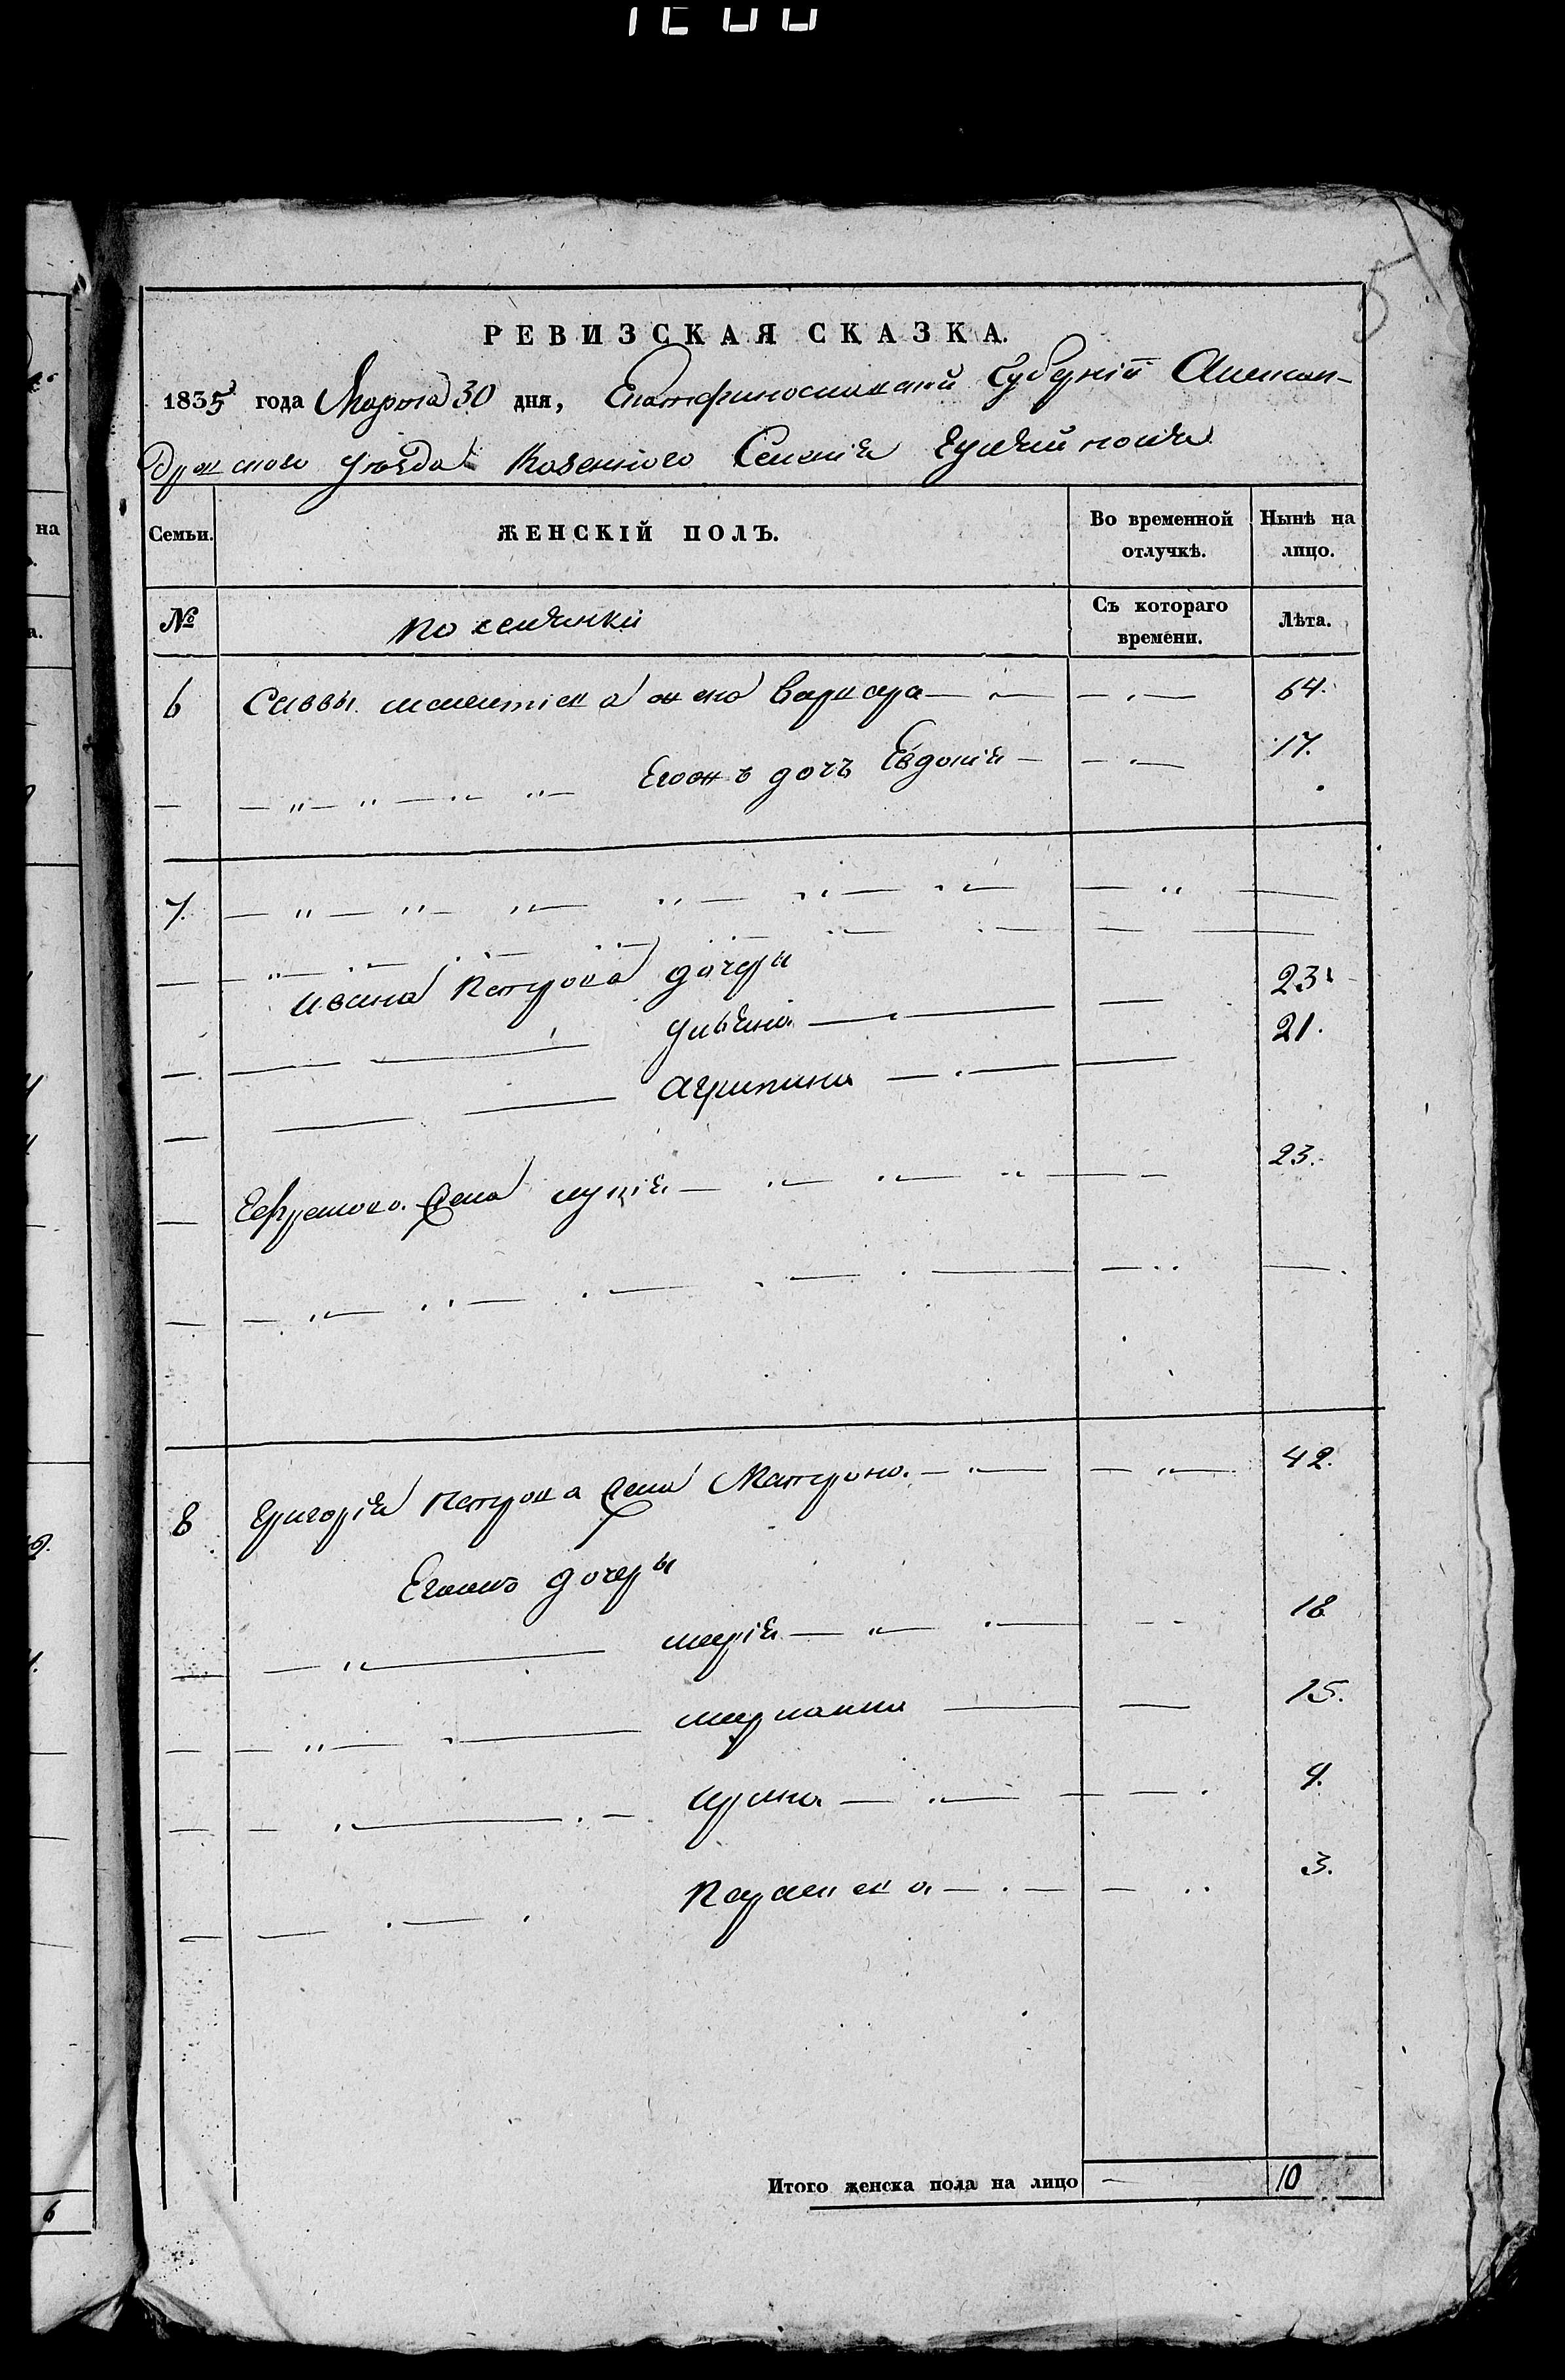 РЕВИЗСКАЯ СКАЗКА.
1835 года Марта 30 дня, Екатериносла́вской Губерніи Алексан-
дровскаго уѣзда Козенного Селенія
Семьи. ЖЕНСКІЙ ПОЛЪ. Во временной отлучкѣ. Нынѣ на лицо.
№ Съ котораго времени. Лѣта.
6 Саввы жена Варвара 64.
Егожъ дочь Евдокія 17.
7.
Ивана Петрова дочери
Ульяна 23
Агрипина 21.
Ефремова жена 23.
8 Григорія Петрова жена Матрона 42.
Егожъ дочеры
марія 18
маріанна 15.
ирина 9.
Параскева 3.
Итого женска пола на лицо 10